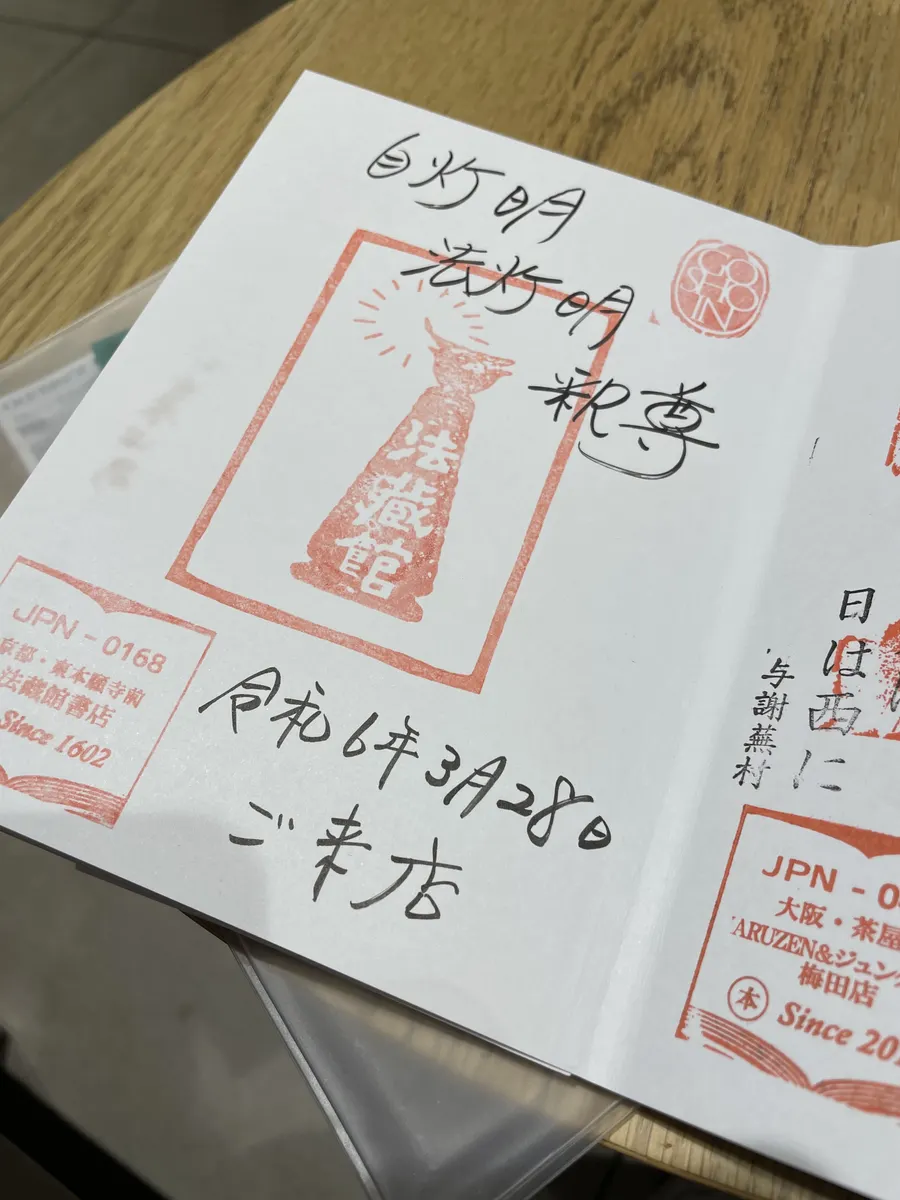 自灯明
法灯明
釈尊
GO
SHO
IN
法
藏
館
JPN - 0168
京都・東本願寺前
法藏館書店
Since 1602
令和6年3月28日
ご来店
日は西に
与謝蕪村
JPN - 0
大阪・茶屋
ARUZEN&ジュン
梅田店
本 Since 20